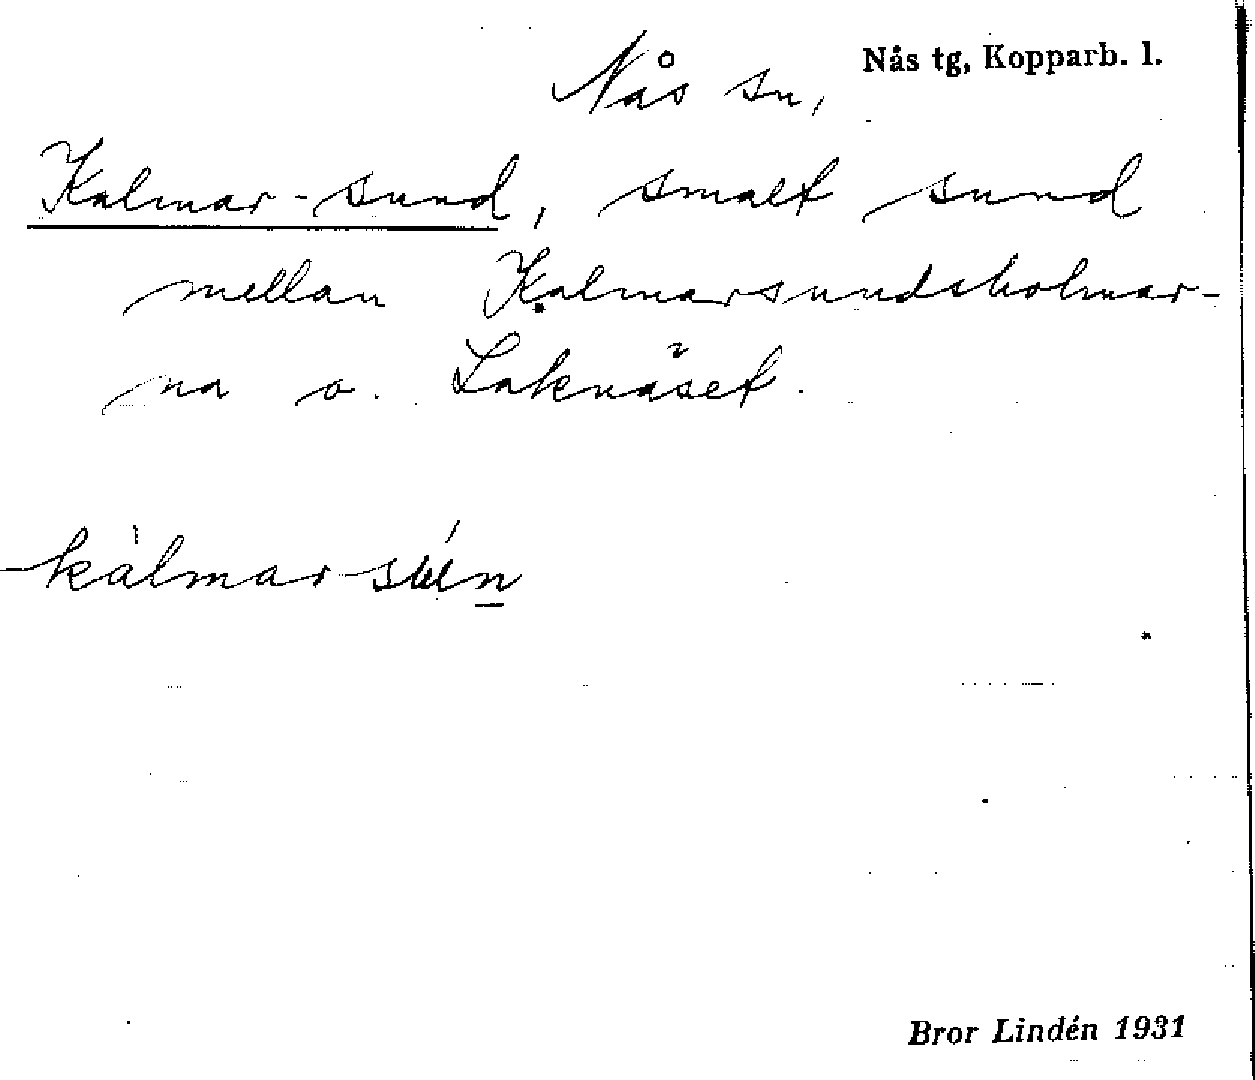 Nås sn, Nås tg, Kopparb. l.
Kalmar-sund, smalt sund
mellan Kalmarsundsholmar-
na o. Laknäset.
Bror Lindén 1931